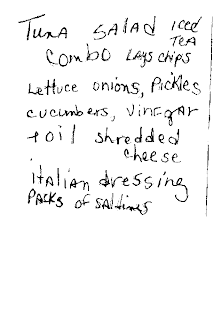 Tuna Salad Iced
Tea
Combo Lays chips
Lettuce onions, Pickles
cucumbers, Vinegar
+ oil shredded
cheese
italian dressing
Packs of Saltines